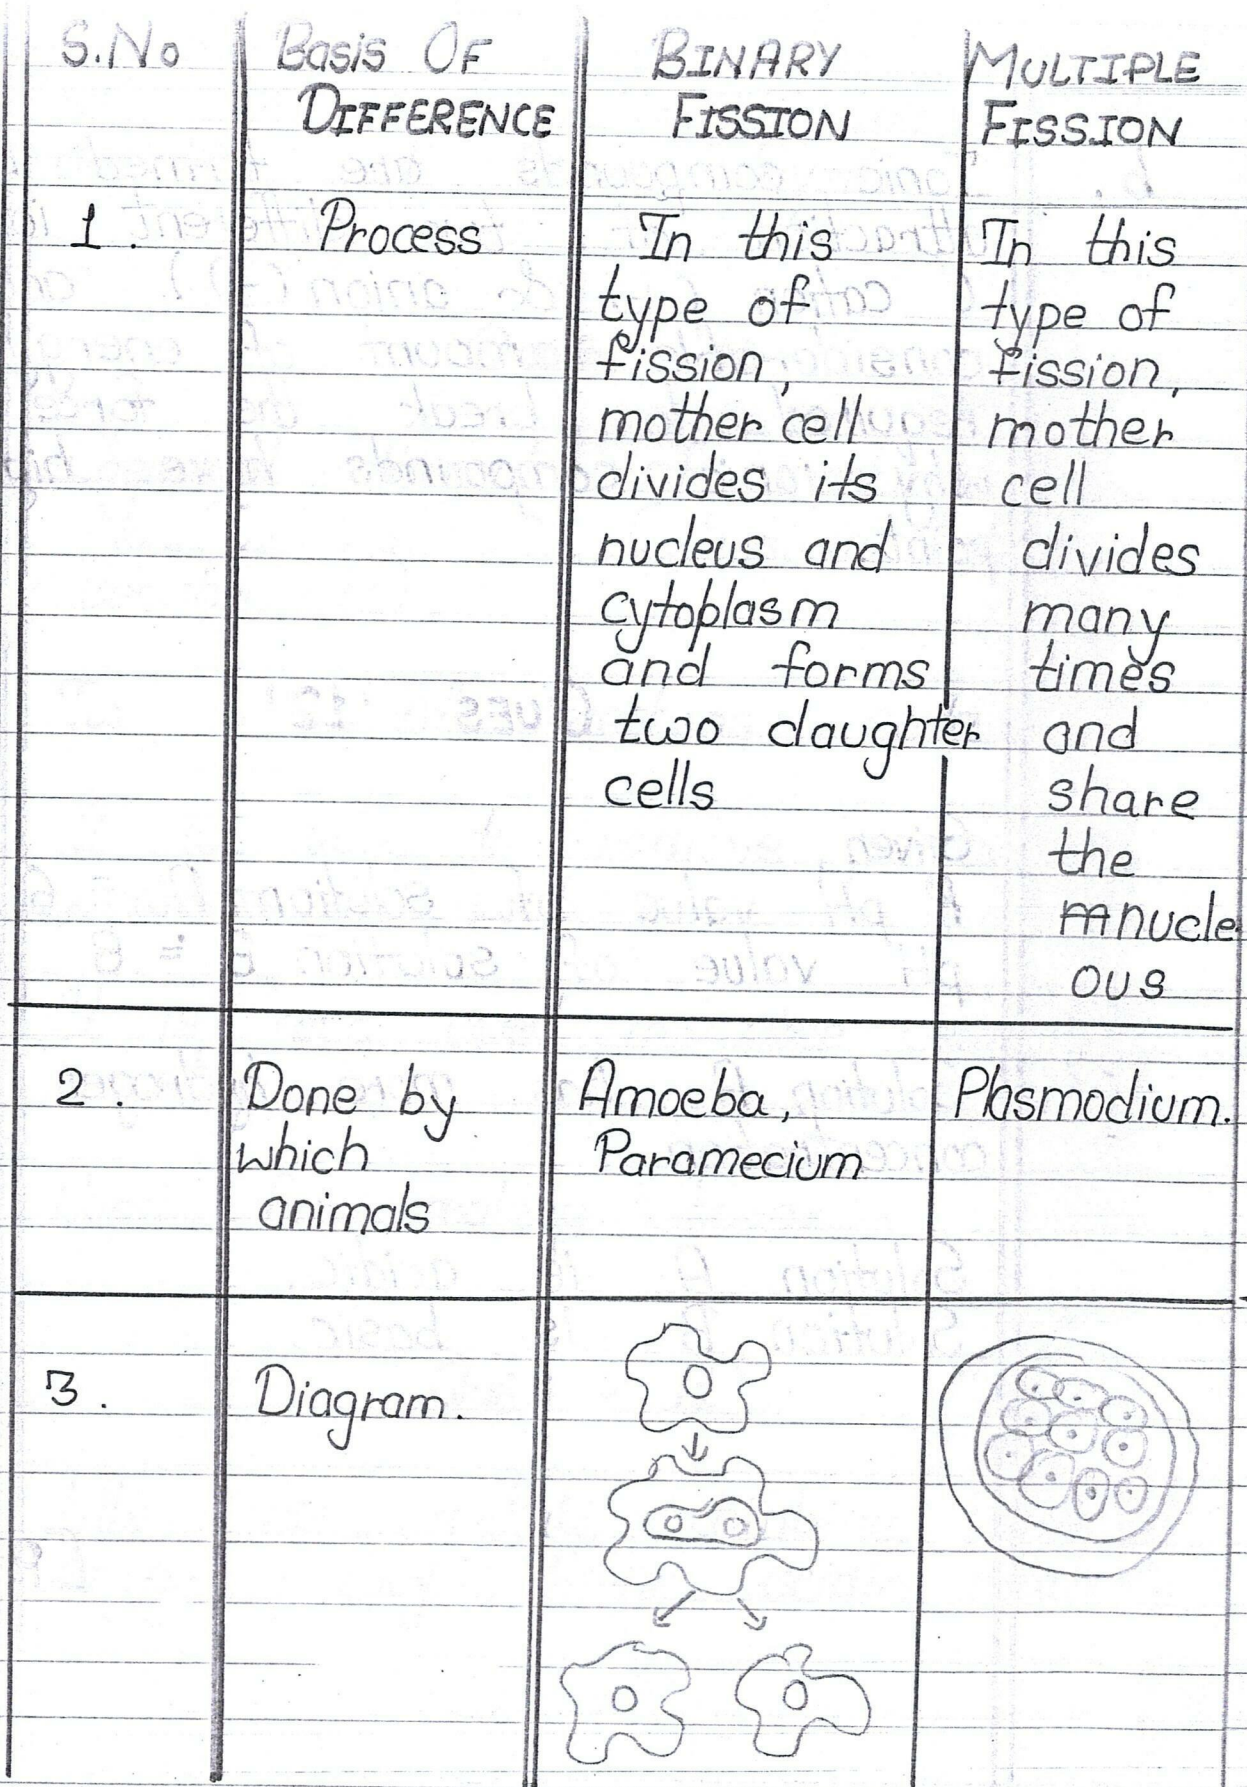 S.No
Basis OF
DIFFERENCE
BINARY
FISSION
MULTIPLE
FISSION
1.
Process
In this
type of
fission,
mother cell
divides its
nucleus and
cytoplasm
and forms
two daughter
cells
In this
type of
fission,
mother
cell
divides
many
times
and
share
the
nucle
ous
2.
Done by
which
animals
Amoeba,
Paramecium
Plasmodium.
3.
Diagram.